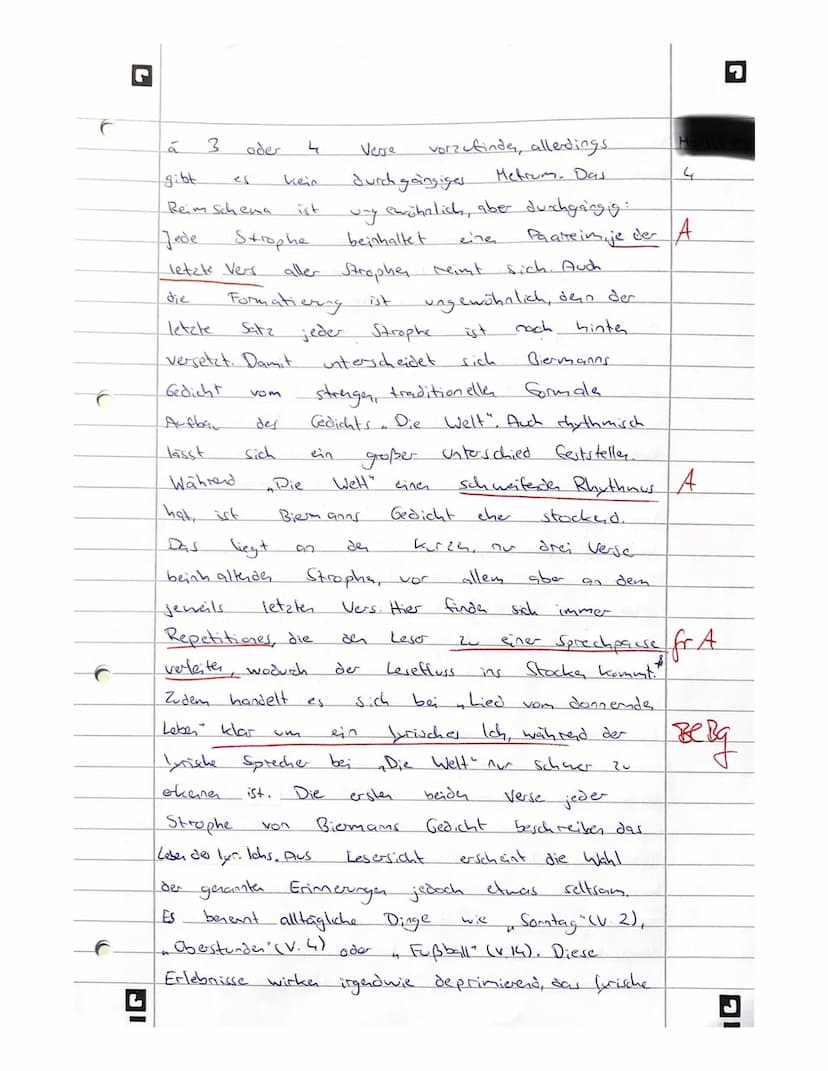 à 3 oder 4 Verse vorzufinden, allerdings
gibt es kein durchgängiges Metrum. Das 4
Reimschema ist ungewöhnlich, aber durchgängig:
Jede Strophe beinhaltet einen Paarreim, je der A
letzte Vers aller Strophen reimt sich. Auch
die Formatierung ist ungewöhnlich, denn der
letzte Satz jeder Strophe ist nach hinten
versetzt. Damit unterscheidet sich Biermanns
Gedicht vom strengen, traditionellen formalen
Aufbau des Gedichts „Die Welt“. Auch rhythmisch
lässt sich ein großer Unterschied feststellen.
Während „Die Welt“ einen schweifenden Rhythmus A
hat, ist Biermanns Gedicht eher stockend.
Das liegt an den kurzen, nur drei Verse
beinhaltenden Strophen, vor allem aber an dem
jeweils letzten Vers. Hier finden sich immer
Repetitiones, die den Leser zu einer Sprechpause fr A
verleiten, wodurch der Lesefluss ins Stocken kommt.*
Zudem handelt es sich bei „Lied vom donnernden
Leben“ klar um ein lyrisches Ich, während der
lyrische Sprecher bei „Die Welt“ nur schwer zu
erkennen ist. Die ersten beiden Verse jeder
Strophe von Biermanns Gedicht beschreiben das
Leben des lyr. Ichs. Aus Lesersicht erscheint die Wahl
der genannten Erinnerungen jedoch etwas seltsam.
Es benennt alltägliche Dinge wie „Sonntag“ (V. 2),
„Überstunden“ (V. 4) oder „Fußball“ (V. 14). Diese
Erlebnisse wirken irgendwie deprimierend, das lyrische